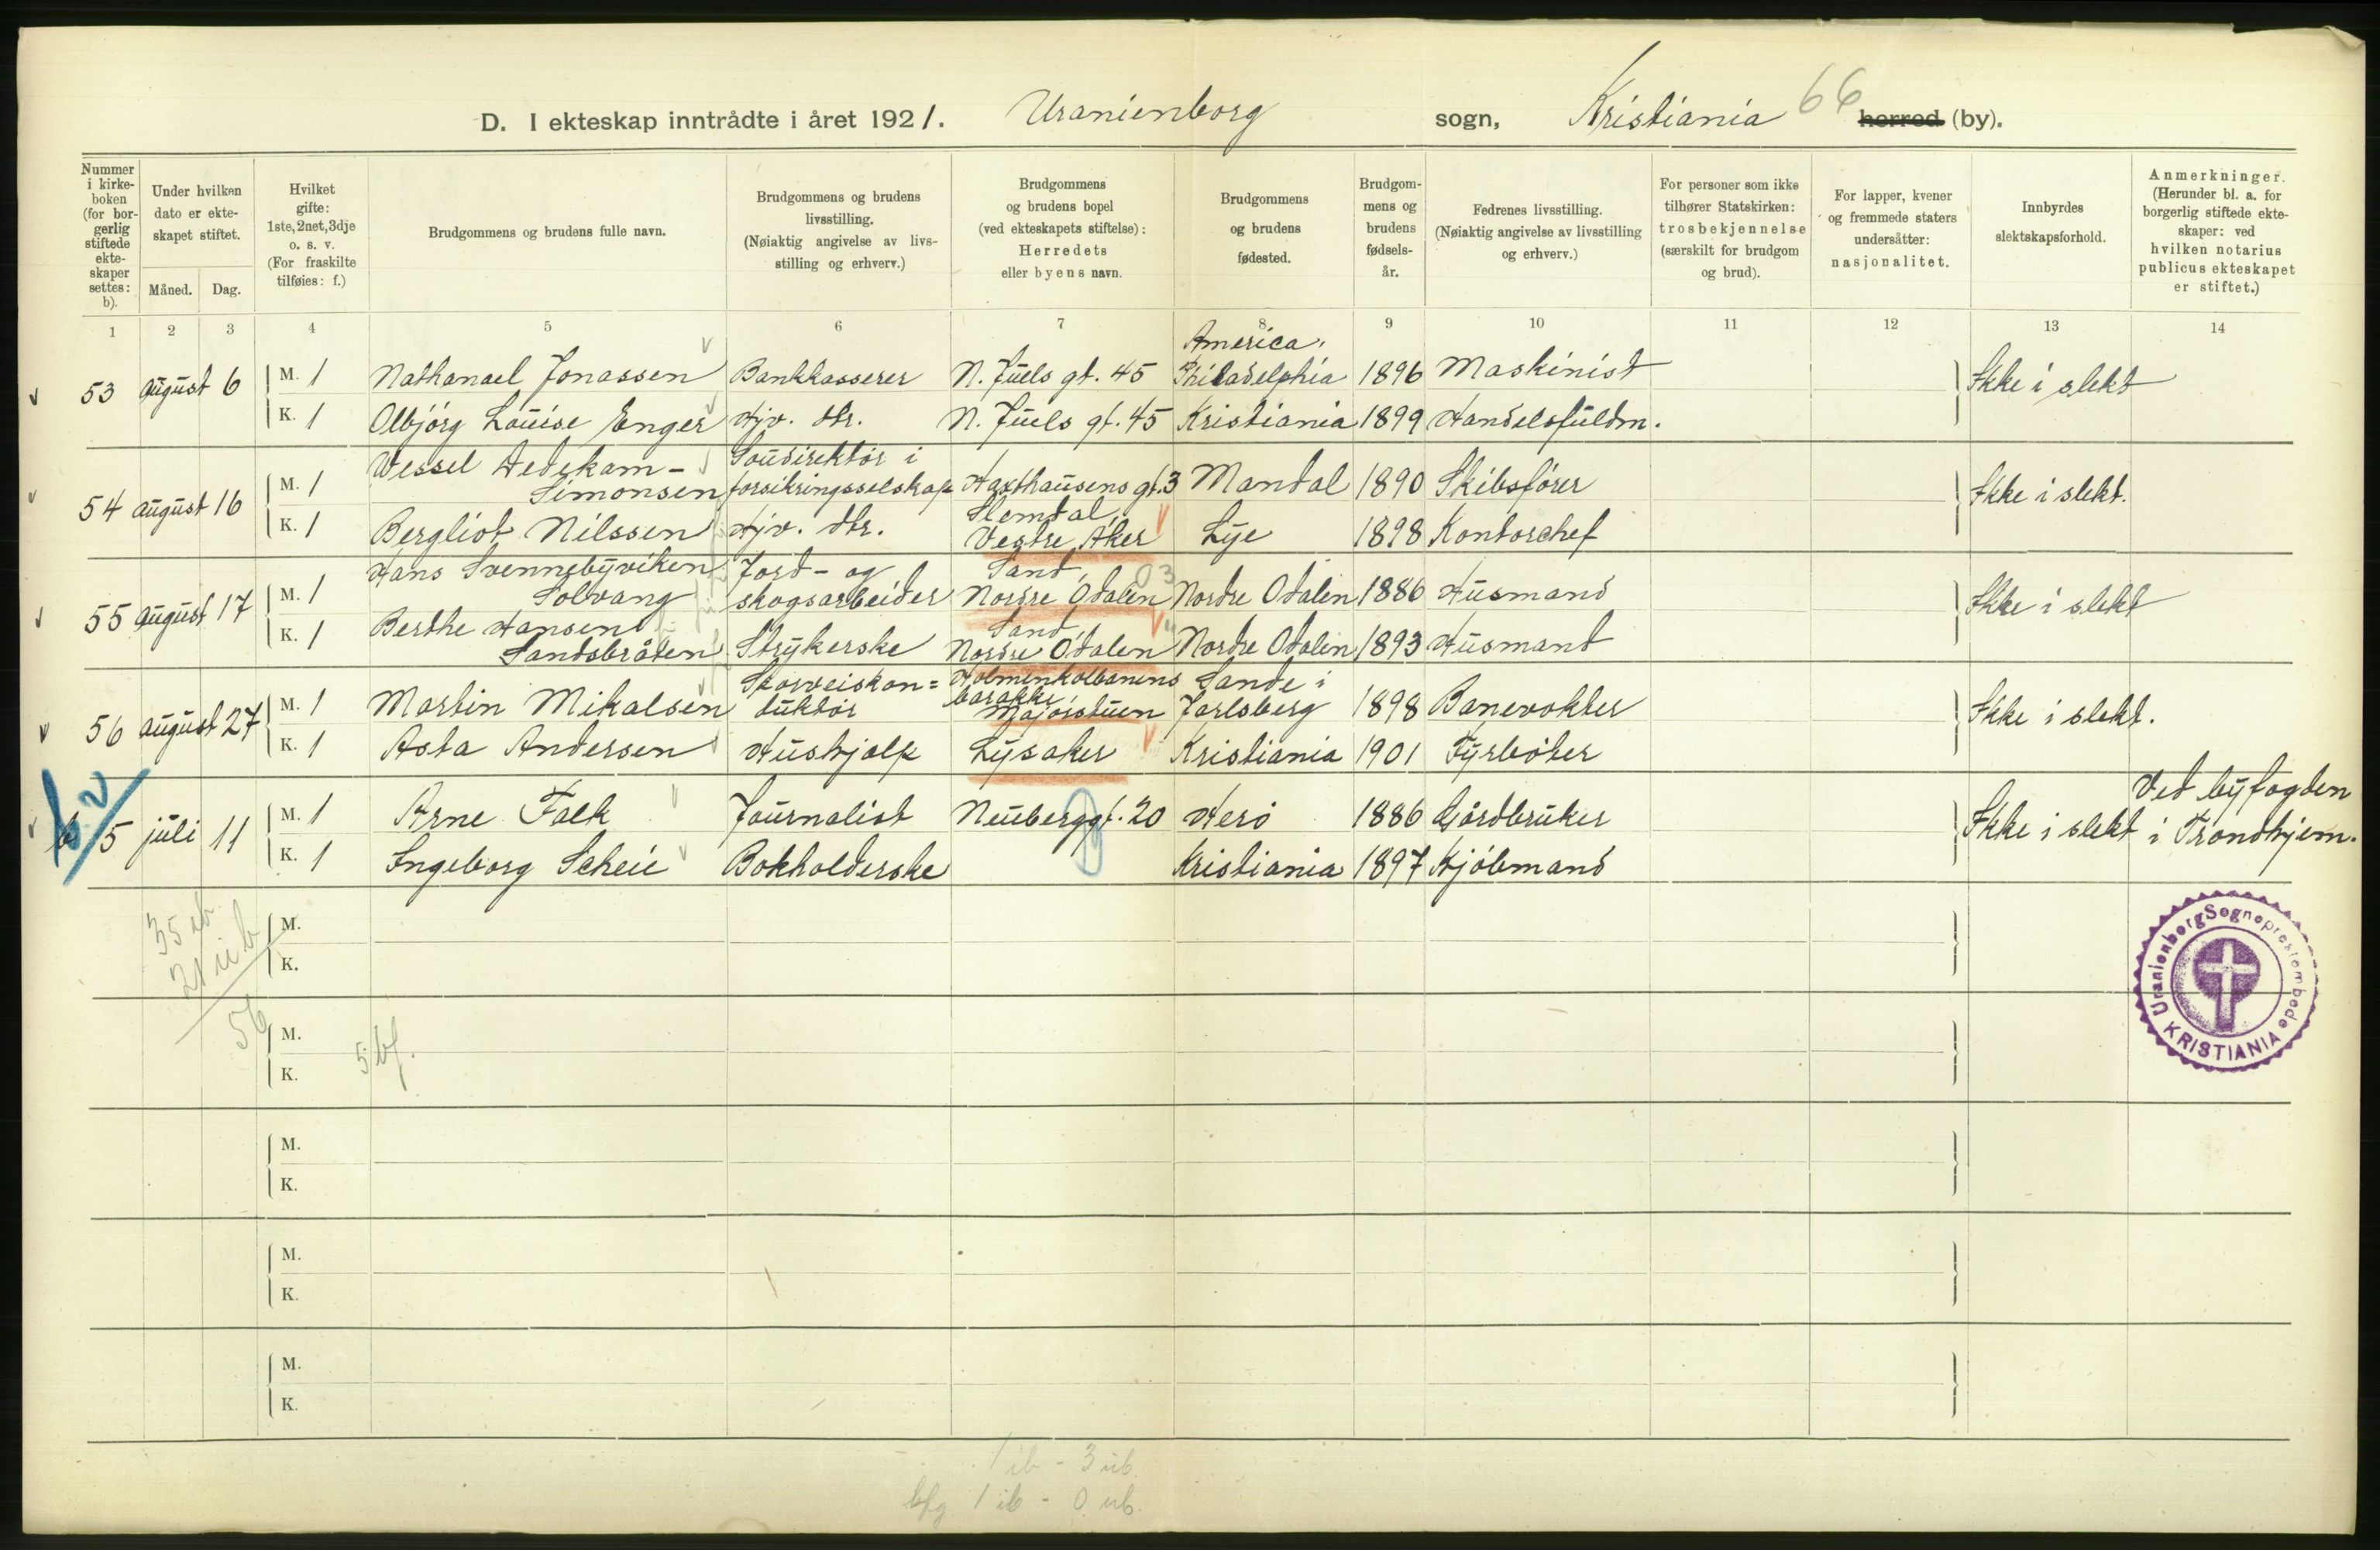 D. I ekteskap inntrådte i året 1921. Uranienborg sogn, Kristiania 66 herred (by).
Nummer i kirkeboken (for borgerlig stiftede ekteskaper settes: b).
Under hvilken dato er ekteskapet stiftet.
Måned. Dag.
Hvilket gifte: 1ste, 2net, 3dje o. s. v. (For fraskilte tilføies: f.)
Brudgommens og brudens fulle navn.
Brudgommens og brudens livsstilling. (Nøiaktig angivelse av livsstilling og erhverv.)
Brudgommens og brudens bopel (ved ekteskapets stiftelse): Herredets eller byens navn.
Brudgommens og brudens fødested.
Brudgommens og brudens fødselsår.
Fedrenes livsstilling. (Nøiaktig angivelse av livsstilling og erhverv.)
For personer som ikke tilhører Statskirken: trosbekjennelse (særskilt for brudgom og brud).
For lapper, kvener og fremmede staters undersåtter: nasjonalitet.
Innbyrdes slektskapsforhold.
Anmerkninger. (Herunder bl. a. for borgerlig stiftede ekteskaper: ved hvilken notarius publicus ekteskapet er stiftet.)
1 2 3 4 5 6 7 8 9 10 11 12 13 14
America,
53 august 6 M. 1 Nathanael Jonassen Bankkasserer N. Juels gt. 45 Philadelphia 1896 Maskinist Ikke i slekt
K. 1 Olbjörg Louise Enger Hjv. dtr. N. Juels gt. 45 Kristiania 1899 Handelsfuldm.
Wessel Dedekam- Soudirektör i
54 august 16 M. 1 Simonsen forsikringsselskap Haxthausens gt. 3 Mandal 1890 Skibsförer Ikke i slekt.
Slemdal,
K. 1 Bergliot Nilssen Hjv. dtr. Vestre Aker Lye 1898 Kontorchef
Hans Svennebyviken Jord- og Sand, 03
55 august 17 M. 1 Solvang skogsarbeider Nordre Odalen Nordre Odalen 1886 Husmand Ikke i slekt
Berthe Hansen Sand,
K. 1 Sandsbråten Strykerske Nordre Odalen Nordre Odalen 1893 Husmand
Sporveiskon= Holmenkolbanens Sande i
barakke
56 august 27 M. 1 Martin Mikalsen duktör Majorstuen Jarlsberg 1898 Banevokter Ikke i slekt.
K. 1 Asta Andersen Hushjelp Lysaker Kristiania 1901 Fyrböter
Ved byfogden
b 5 juli 11 M. 1 Arne Falk Journalist Neuberggt. 20 Herö 1886 Gårdbruker Ikke i slekt i Trondhjem.
K. 1 Ingeborg Scheie Bokholderske Kristiania 1897 Kjöbmand
35 ib
21 ub
56
5 bf.
M.
K.
M.
K.
M.
K.
M.
K.
M.
K.
Uranienborg Sogneprestembede
KRISTIANIA
1 ib - 3 ub.
bfg 1 ib - 0 ub.